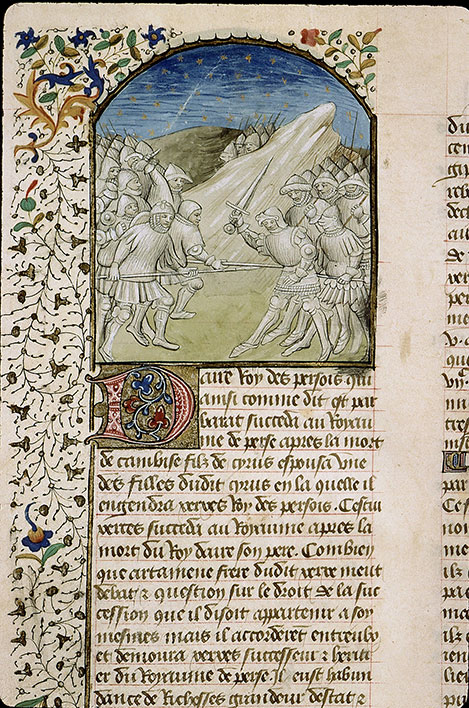 Daire Roy des persois qui
ainsi comme dit est par
barat succeda au Royau
me de perse apres la mort
de cambise filz de cyrus espousa vne
des filles dudit cyrus en la quelle il
engendra xerxes Roy des persois. Cestui
xerxes succeda au Royaume apres la
mort du Roy daire son pere. Combien
que artamene frere dudit xerxe meut
debat & question sur le droit de la suc
cession que il disoit appartenir a soy
mesmes mais il accorderent entreulx
et demoura xerxes successeur & heriti
er du Royaume de perse. Il eust habun
dance de Richesses grandeur destat &